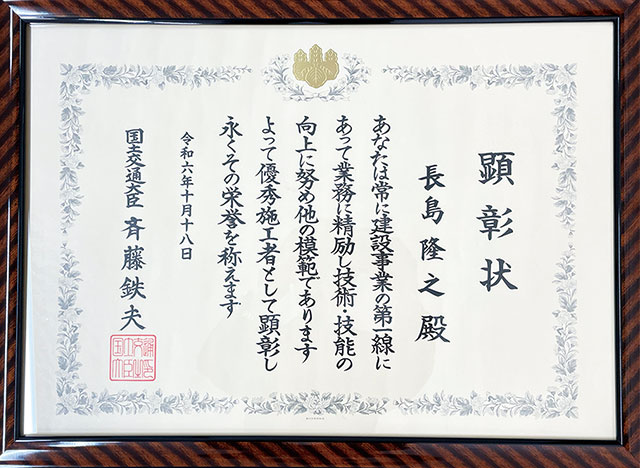 顕彰状
長島隆之殿
あなたは常に建設事業の第一線に
あって業務に精励し技術・技能の
向上に努め他の模範であります
よって優秀施工者として顕彰し
永くその栄誉を称えます
令和六年十月十八日
国土交通大臣 斉藤鉄夫